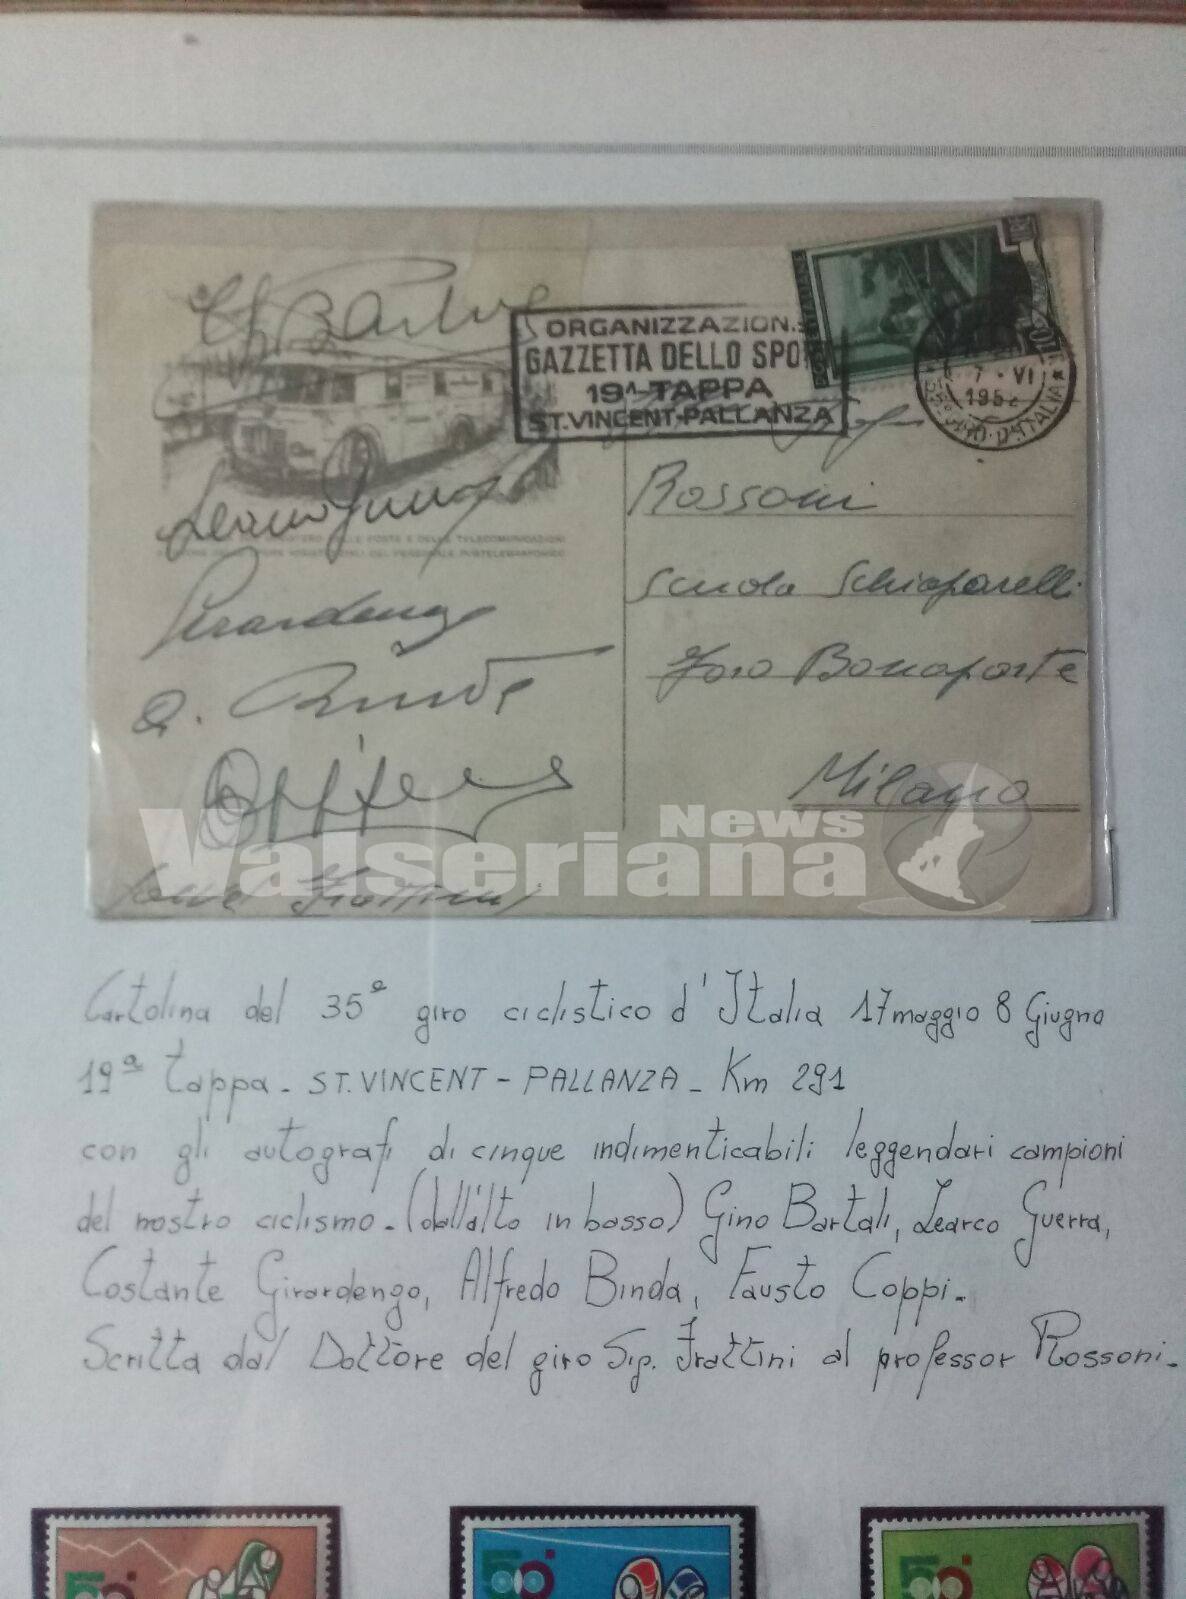 ORGANIZZAZION
GAZZETTA DELLO SPO
19ª TAPPA
ST.VINCENT-PALLANZA
LIRE
7 - VI
195
GIRO D'ITALIA
G Bartali
Learco Guerra
POSTE E DELLE TELECOMUNICAZIONI
DEL PERSONALE POSTELEGRAFONICO
Girardengo
a. Binda
Rossoni
Scuola Schiaparelli
Foro Bonaparte
Milano
Frattini
News
Valseriana
Cartolina del 35° giro ciclistico d'Italia 17 maggio 8 Giugno
19ª tappa - ST. VINCENT - PALLANZA - Km 291
con gli autografi di cinque indimenticabili leggendari campioni
del nostro ciclismo - (dall'alto in basso) Gino Bartali, Learco Guerra,
Costante Girardengo, Alfredo Binda, Fausto Coppi -
Scritta dal Dottore del giro Sig. Frattini al professor Rossoni -